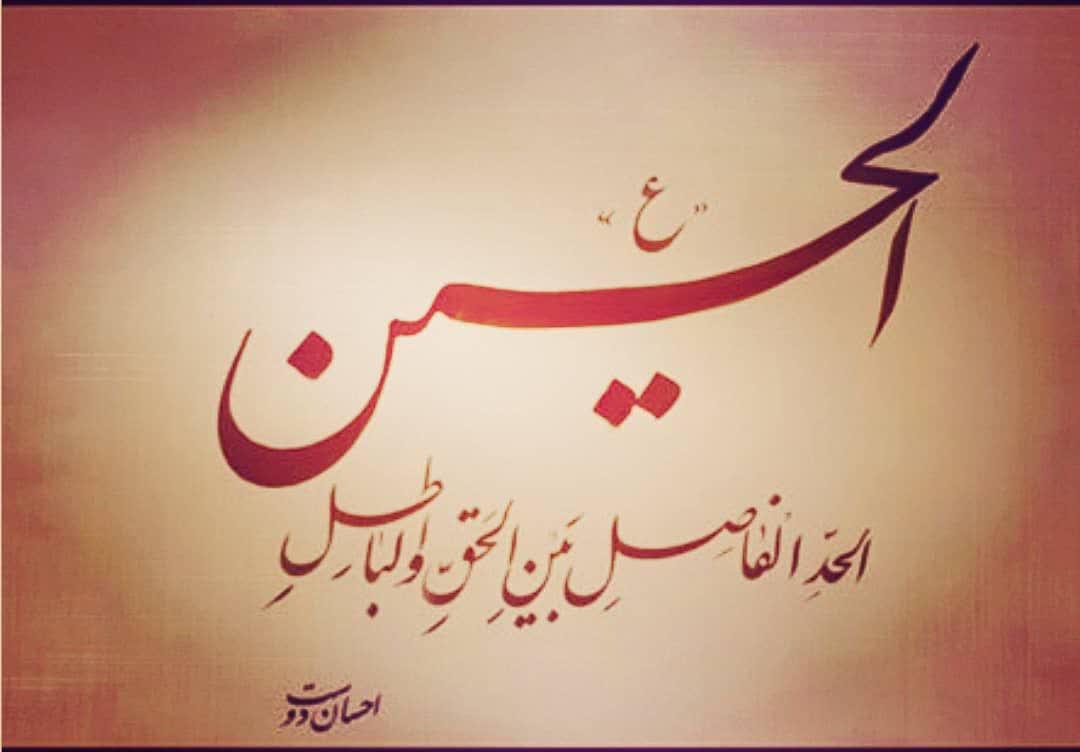 الحسین
«ع»
الحدِ الفاصِلِ بَینِ الحَقِّ والباطِلِ
احسان دوست